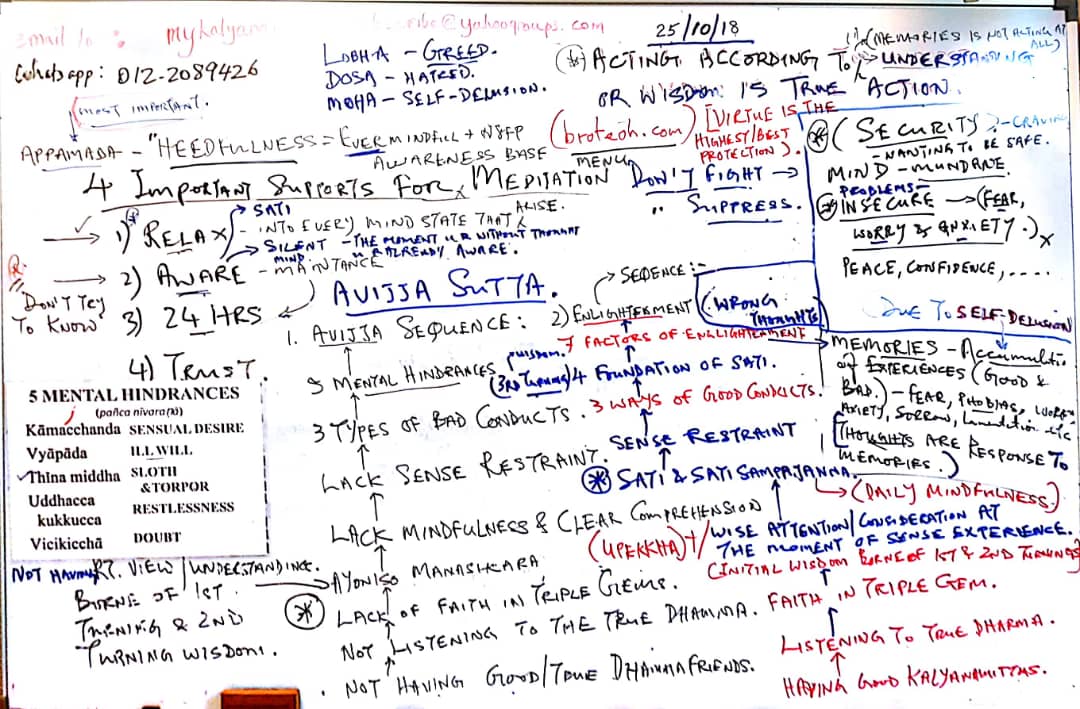 Email to : mykalyan
@yahoogroups.com
25/10/18
Whatsapp: 012-2089426
LOBHA - GREED.
DOSA - HATRED.
MOHA - SELF-DELUSION.
(*) ACTING ACCORDING TO UNDERSTANDING
(MEMORIES IS NOT ACTING AT ALL)
OR WISDOM IS TRUE ACTION.
most important.
APPAMADA - "HEEDFULNESS = EVER MINDFUL +
AWARENESS BASE
(broteoh.com)
MENU
[VIRTUE IS THE
HIGHEST/BEST
PROTECTION).
4 IMPORTANT SUPPORTS FOR MEDITATION
DON'T FIGHT →
" SUPPRESS.
(SECURITY?-CRAVING
- WANTING TO BE SAFE.
MIND - MUNDANE
PROBLEMS-
INSECURE → (FEAR,
WORRY & ANXIETY.)x
PEACE, CONFIDENCE, ....
1) RELAX
SATI
- INTO EVERY MIND STATE THAT
ARISE.
SILENT MIND - THE MOMENT U R WITHOUT THOUGHT
U R ALREADY AWARE.
2) AWARE - MAINTANCE
DON'T TRY
TO KNOW
3) 24 HRS
4) TRUST.
AVIJJA SUTTA.
1. AVIJJA SEQUENCE:
5 MENTAL HINDRANCES
3 TYPES OF BAD CONDUCTS.
LACK SENSE RESTRAINT.
LACK MINDFULNESS & CLEAR COMPREHENSION
AYONISO MANASIKARA
LACK OF FAITH IN TRIPLE GEMS.
NOT LISTENING TO THE TRUE DHAMMA.
NOT HAVING GOOD/TRUE DHAMMA FRIENDS.
2) ENLIGHTENMENT
SEQENCE:-
(WRONG
THOUGHTS)
7 FACTORS OF ENLIGHTENMENT
wisdom.
(3RD TURNING) 4 FOUNDATION OF SATI.
3 WAYS OF GOOD CONDUCTS.
SENSE RESTRAINT
(*) SATI & SATI SAMPAJANNA.
(DAILY MINDFULNESS)
(UPEKKHA) / WISE ATTENTION/CONSIDERATION AT
THE MOMENT OF SENSE EXPERIENCE.
(INITIAL WISDOM BORNE OF 1ST & 2ND TURNINGS)
FAITH IN TRIPLE GEM.
LISTENING TO TRUE DHARMA.
HAVING GOOD KALYANAMITTAS.
DUE TO SELF-DELUSION
MEMORIES - Accumulatio
of EXPERIENCES (GOOD &
BAD.) - FEAR, PHOBIAS, WORRY,
ANXIETY, SORROW, Lamentation etc
[THOUGHTS ARE RESPONSE TO
MEMORIES.)
5 MENTAL HINDRANCES
(pañca nivaraṇa)
Kāmacchanda SENSUAL DESIRE
Vyāpāda ILL WILL
Thīna middha SLOTH
&TORPOR
Uddhacca
kukkucca RESTLESSNESS
Vicikicchā DOUBT
NOT HAVING RT. VIEW/UNDERSTANDING.
BORNE OF 1ST
TURNING & 2ND
TURNING WISDOM.